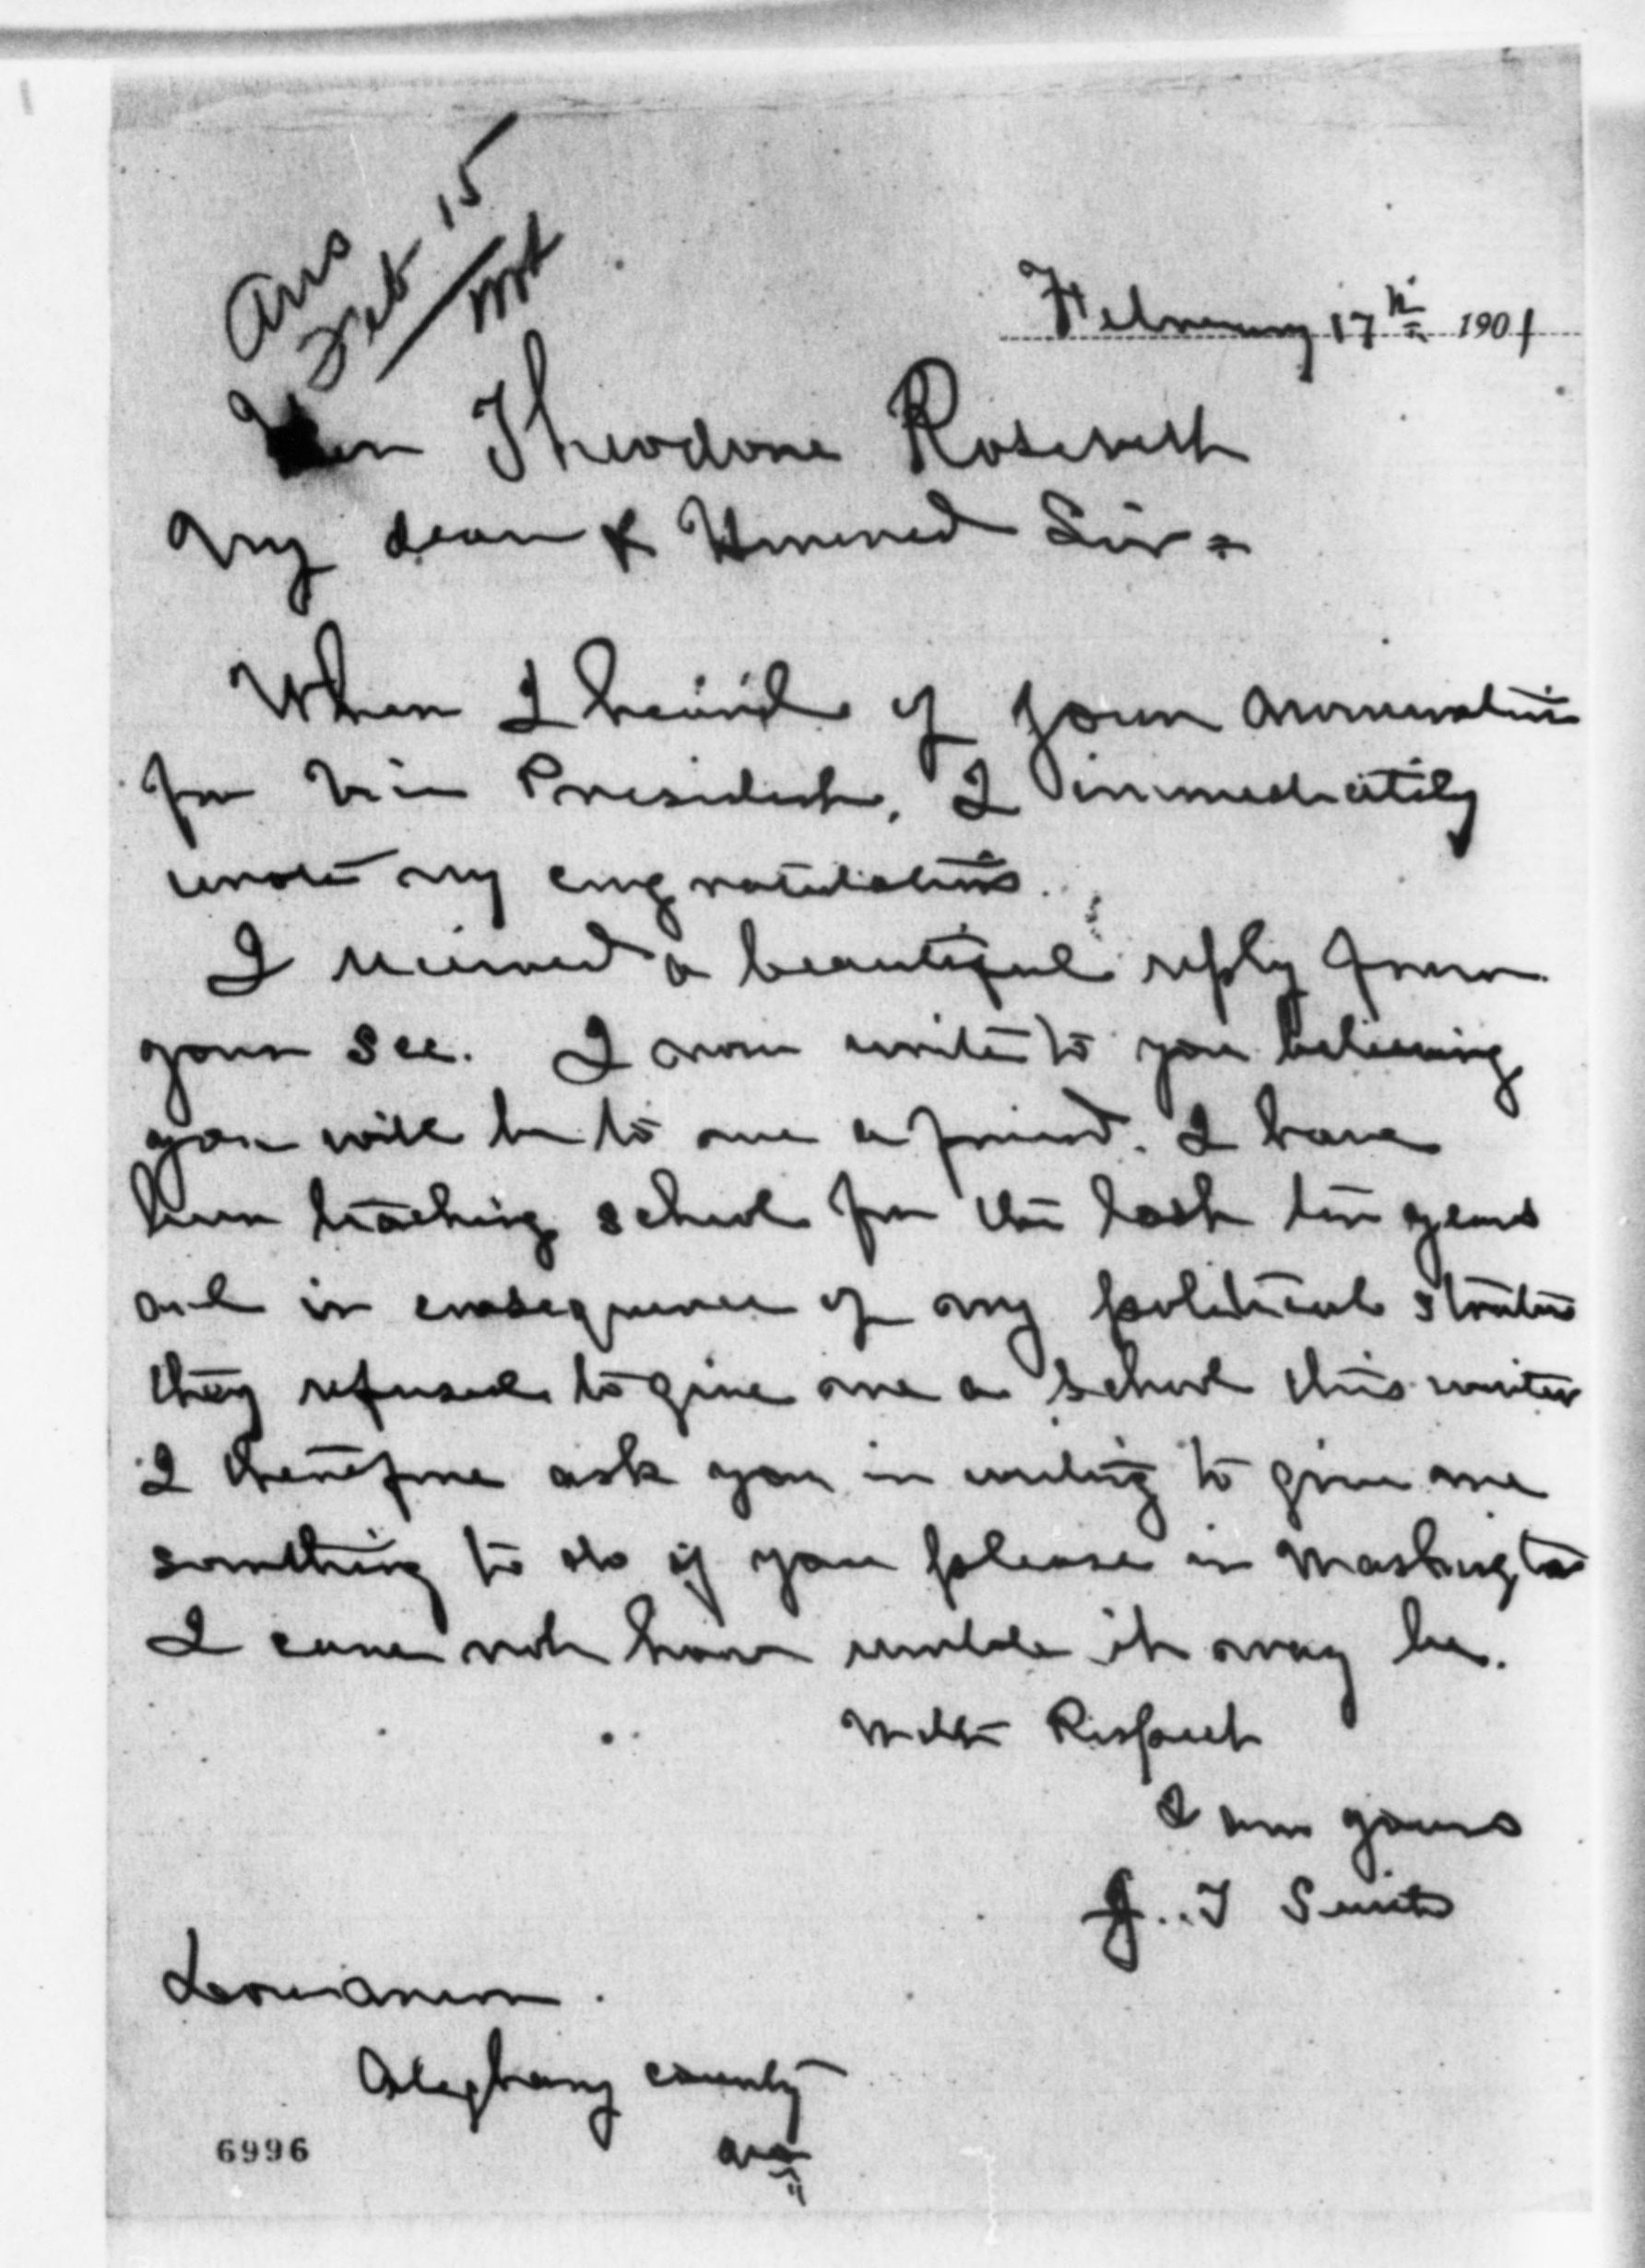 Ans
Feb 15
February 17th 1901
Theodore Rosevelt
My dear & Honored Sir =
When I heard of your nomination
for Vice President, I immediately
wrote my congratulations.
I received a beautiful reply from
your Sec. I now write to you believing
you will be to me a friend. I have
been teaching school for the last ten years
and in consequence of my political status
they refused to give me a school this winter
I therefore ask you in writing to give me
something to do if you please in Washington
I care not how umble it may be.
With Respect
I am yours
J. T Smith
Aleghany county
6996